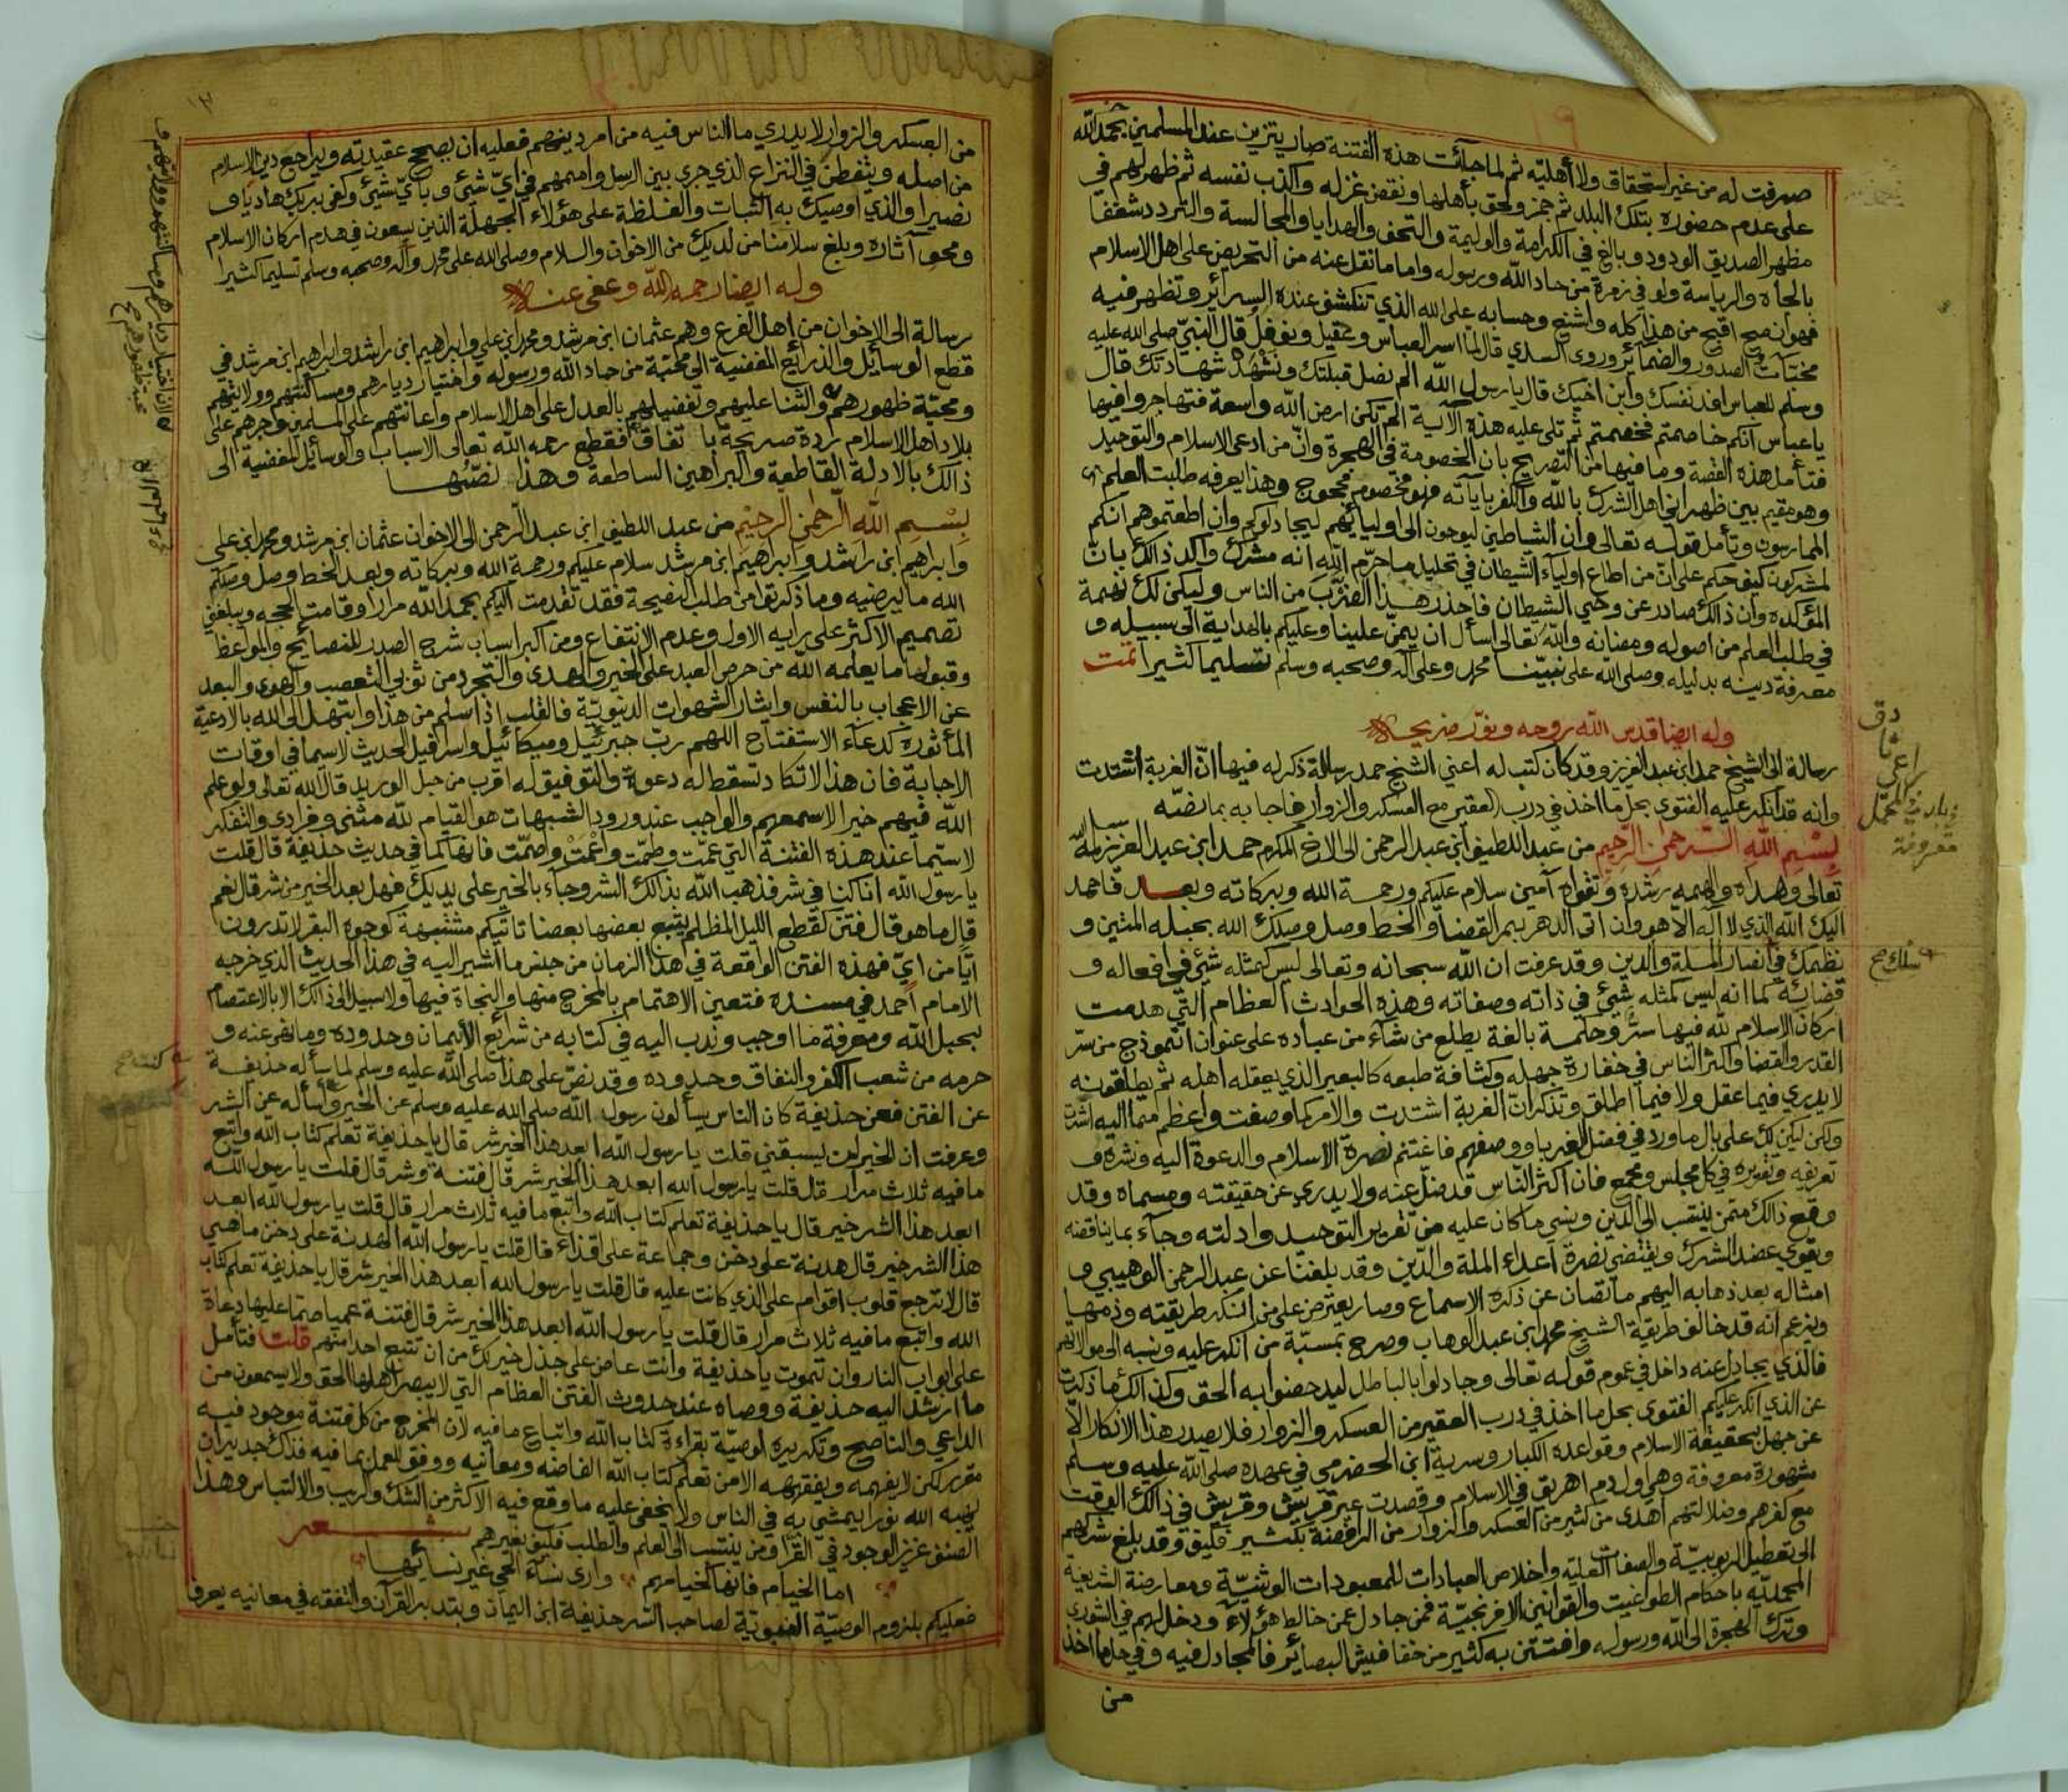 صرفت له من غير استحقاق ولا أهليّه ثم لما جآئت هذه الفتنة صار يتزين عند المسلمين بحمد الله
على عدم حضوره بتلك البلد ثم جمز ولحق بأهلها ونقض غزله وأكذب نفسه ثم ظهر لهم في
مظهر الصديق الودود وبالغ في الكرامة والوليمة والتحف والهدايا والمجالسة والتردد شغفا
بالجاه والرياسة ولو في زمرة من حاد الله ورسوله واما ما نقل عنه من التحريض على اهل الاسلام
فهو ان صح اقبح من هذا كله واشنع وحسابه على الله الذي تنكشف عنده السرائر وتظهر فيه
مخبئات الصدور والضمائر وروى السدي قال لما اسر العباس وعقيل ونوفل قال النبيّ صلى الله عليه
وسلم للعباس افد نفسك وابن اخيك قال يارسول الله الم نصل قبلتك ونشهد شهادتك قال
ياعباس انكم خاصمتم فخصمتم ثم تلى عليه هذه الآية الم تكن ارض الله واسعة فتهاجروا فيها
فتأمل هذه القصة وما فيها من التصريح بان الخصومة في الهجرة وانّ من ادعى الاسلام والتوحيد
وهو مقيم بين ظهراني اهل الشرك بالله والكفر بآياته فهو مخصوم محجوج وهذا يعرفه طلبت العلم
الممارسون وتأمل قوله تعالى وان الشياطين ليوحون الى اوليائهم ليجادلوكم وان اطعتموهم انكم
لمشركون كيف حكم على انّ من اطاع اولياء الشيطان في تحليل ما حرّم الله انه مشرك وأكد ذالك بانّ
المؤكده وان ذالك صادر عن وحي الشيطان فاحذر هذا الضرب من الناس وليكن لك نهمة
في طلب العلم من اصوله ومضانه والله تعالى اسأل ان يمنّ علينا وعليكم بالهداية الى سبيله و
معرفة دينه بدليله وصلى الله على نبيّنا محمد وعلى آله وصحبه وسلم تسليما كثيرا تمت
وله ايضا قدس الله روحه ونوّر ضريحه
رسالة الى الشيخ حمد ابن عبد العزيز وقد كان كتب له اعني الشيخ حمد رسالة ذكر له فيها انّ الغربة اشتدت
وانه قد أنكر عليه الفتوى بحل ما اخذ في درب العقير مع العسكر والزوار فاجابه بما نصّه
بسم الله الرحمن الرحيم من عبد اللطيف ابن عبد الرحمن الى الاخ المكرم حمد ابن عبد العزيز سلمه الله
تعالى وهداه والهمه رشده وتقواه آمين سلام عليكم ورحمة الله وبركاته وبعد فاحمد
اليك الله الذي لا اله الا هو وان اتى الدهر بمر القضا والخط وصل وصلك الله بحبله المتين و
نظمك في انصار الملة والدين وقد عرفت ان الله سبحانه وتعالى ليس كمثله شيئ في افعاله و
قضائه كما انه ليس كمثله شيئ في ذاته وصفاته وهذه الحوادث العظام التي هدمت
اركان الاسلام لله فيها سرّ وحكمة بالغة يطلع من شاء من عباده على عنوان انموذج من سرّ
القدر والقضا واكثر الناس في خفارة جهله وكثافة طبعه كالبعير الذي يعقله اهله ثم يطلقونه
لا يدري فيما عقل ولا فيما اطلق وتذكر انّ الغربة اشتدت والامر كما وصفت واعظم مما اليه اشرت
ولكن ليكن لك على بال ما ورد في فضل الغربا ووصفهم فاغتنم نصرة الاسلام والدعوة اليه ونشره و
تعريفه وتقريره في كل مجلس ومجمع فان اكثر النّاس قد ضلّ عنه ولا يدري عن حقيقته ومسماه وقد
وقع ذالك ممّن ينتسب الى الدين ونسي ما كان عليه من تقرير التوحيد وادلته وجاء بما يناقضه
ويقوي عضد الشرك ويقتضي نصرة اعداء الملة والدّين وقد بلغنا عن عبد الرحمن الوهيبي و
امثاله بعد ذهابه اليهم ما تصان عن ذكره الاسماع وصار يعترض على من انكر طريقته وذمها
ويزعم انه قد خالف طريقة الشيخ محمد ابن عبد الوهاب وصرح بمسبّة من انكر عليه ونسبه الى موالاتهم
فالذي يجادل عنه داخل في عموم قوله تعالى وجادلوا بالباطل ليدحضوا به الحق وكذالك ما ذكرت
عن الذي انكر عليكم الفتوى بحل ما اخذ في درب العقير من العسكر والزوار فلا يصدر هذا الانكار الاّ
عن جهل بحقيقة الاسلام وقواعده الكبار وسرية ابن الحضرمي في عهده صلى الله عليه وسلم
مشهورة معروفة وهي اول دم اهريق في الاسلام وقصدت عير قريش وقريش في ذالك الوقت
مع كفرهم وضلالتهم اهدى من كثير من العسكر والزوار من الرافضة بكثير فكيف وقد بلغ شركهم
الى تعطيل الربوبيّة والصفات العليّه واخلاص العبادات للمعبودات الوثنيّة ومعارضة الشريعة
المحمديّه باحكام الطواغيت والقوانين الافرنجيّة فمن جادل عمن خالط هؤلاء ودخل لهم في الشورى
وترك الهجرة الى الله ورسوله وافتتن به كثير من خفافيش البصائر فالمجادل فيه وفي حل ما اخذ
من
من العسكر والزوار لا يدري ما الناس فيه من امر دينهم فعليه ان يصحح عقيدته ويراجع دين الاسلام
من اصله ويتفطن في النزاع الذي جرى بين الرسل واممهم في ايّ شيئ وبأيّ شيئ وكفى بربك هاديا و
نصيرا والذي اوصيك به الثبات والغلظة على هؤلاء الجهلة الذين يسعون في هدم اركان الاسلام
ومحو آثاره وبلغ سلامنا من لديك من الاخوان والسلام وصلى الله على محمد وآله وصحبه وسلم تسليما كثيرا
وله ايضا رحمه الله وعفى عنه
رسالة الى الاخوان من اهل الفرع وهم عثمان ابن مرشد ومحمد ابن علي وابراهيم ابن راشد وابراهيم ابن مرشد في
قطع الوسائل والذرائع المفضية الى محبّة من حاد الله ورسوله واختيار ديارهم ومساكنتهم وولائهم
ومحبّة ظهورهم والثنا عليهم وتفضيلهم بالعدل على اهل الاسلام واعانتهم على المسلمين وجرهم على
بلاد اهل الاسلام ردة صريحة باتفاق فقطع رحمه الله تعالى الاسباب والوسائل المفضية الى
ذالك بالادلة القاطعة والبراهين الساطعة وهذا نصّها
بسم الله الرحمن الرحيم من عبد اللطيف ابن عبد الرحمن الى الاخوان عثمان ابن مرشد ومحمد ابن علي
وابراهيم ابن راشد وابراهيم ابن مرشد سلام عليكم ورحمة الله وبركاته وبعد الخط وصل وصلكم
الله ما يرضيه وما ذكرتوا من طلب النصيحة فقد تقدمت اليكم بحمد الله مرارا وقامت الحجه ويبلغني
تصميم الاكثر على رايه الاول وعدم الانتفاع ومن اكبر اسباب شرح الصدر للنصائح والمواعظ
وقبولها ما يعلمه الله من حرص العبد على الخير والهدى والتجرد من ثوبي التعصب والهوى والبعد
عن الاعجاب بالنفس وايثار الشهوات الدنيويّة فالقلب إذا سلم من هذا وابتهل الى الله بالادعية
المأثورة كدعاء الاستفتاح اللهم ربّ جبرئيل وميكائيل واسرافيل الحديث لاسيما في اوقات
الاجابة فان هذا لا تكاد تسقط له دعوة والتوفيق له اقرب من حبل الوريد قال الله تعالى ولو علم
الله فيهم خيرا لاسمعهم والواجب عند ورود الشبهات هو القيام لله مثنى وفرادى والتفكر
لاسيّما عند هذه الفتنة التي عمّت وطمّت وأعمت واصمّت فانها كما في حديث حذيفة قال قلت
يارسول الله اناكنا في شر فذهب الله بذالك الشر وجاء بالخير على يديك فهل بعد الخير من شر قال نعم
قال ما هو قال فتن كقطع الليل المظلم يتبع بعضها بعضا تاتيكم مشتبهة كوجوه البقر لا تدرون
ايّا من ايّ فهذه الفتن الواقعة في هذا الزمان من جنس ما اشير اليه في هذا الحديث الذي خرجه
الامام احمد في مسنده فتعين الاهتمام بالمخرج منها والنجاة فيها ولا سبيل الى ذالك الا بالاعتصام
بحبل الله ومعرفة ما اوجب وندب اليه في كتابه من شرائع الايمان وحدوده وما نهى عنه و
حرمه من شعب الكفر والنفاق وحدوده وقد نصّ على هذا صلى الله عليه وسلم لما سأله حذيفة
عن الفتن فعن حذيفة كان الناس يسألون رسول الله صلى الله عليه وسلم عن الخير وأسأله عن الشر
وعرفت ان الخير لن يسبقني قلت يارسول الله ابعد هذا الخير شر قال ياحذيفة تعلم كتاب الله واتبع
ما فيه ثلاث مرار قال قلت يارسول الله ابعد هذا الخير شر قال فتنة وشر قال قلت يارسول الله
ابعد هذا الشر خير قال ياحذيفة تعلم كتاب الله واتبع ما فيه ثلاث مرار قال قلت يارسول الله ابعد
هذا الشر خير قال هدنة على دخن وجماعة على اقذاء قال قلت يارسول الله الهدنة على دخن ما هي
قال لا ترجع قلوب اقوام على الذي كانت عليه قال قلت يارسول الله ابعد هذا الخير شر قال ياحذيفة تعلم كتاب
الله واتبع ما فيه ثلاث مرار قال قلت يارسول الله ابعد هذا الخير شر قال فتنة عميا صمّا عليها دعاة
على ابواب النار وان تموت ياحذيفة وانت عاض على جذل خير لك من ان تتبع احدا منهم قلت فتأمل
ما ارشد اليه حذيفة ووصاه عند حدوث الفتن العظام التي لا يبصر اهلها الحق ولا يسمعون من
الداعي والناصح وتكريره الوصيّة بقراءة كتاب الله واتباع ما فيه لان المخرج من كل فتنة موجود فيه
مقرر لكن لا يفهمه ويفقهه الا من تعلم كتاب الله الفاضه ومعانيه ووفق للعمل بما فيه فذك جدير ان
يهبه الله نورا يمشي به في الناس ولا يخفى عليه ما وقع فيه الاكثر من الشك والريب والالتباس وهذا
الصنف عزيز الوجود في القرّا ومن ينتسب الى العلم والطلب فكيف بغيرهم شعر
اما الخيام فانها كخيامهم وارى نساء الحي غير نسائها
فعليكم بلزوم الوصيّة النبويّة لصاحب السّر حذيفة ابن اليمان وبتدبر القرآن والتفقه في معانيه يعرف